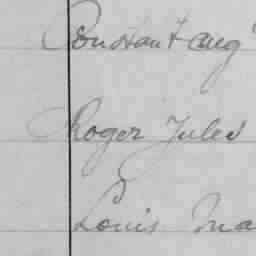 Constant Aug
Roger Jules
Louis Ma